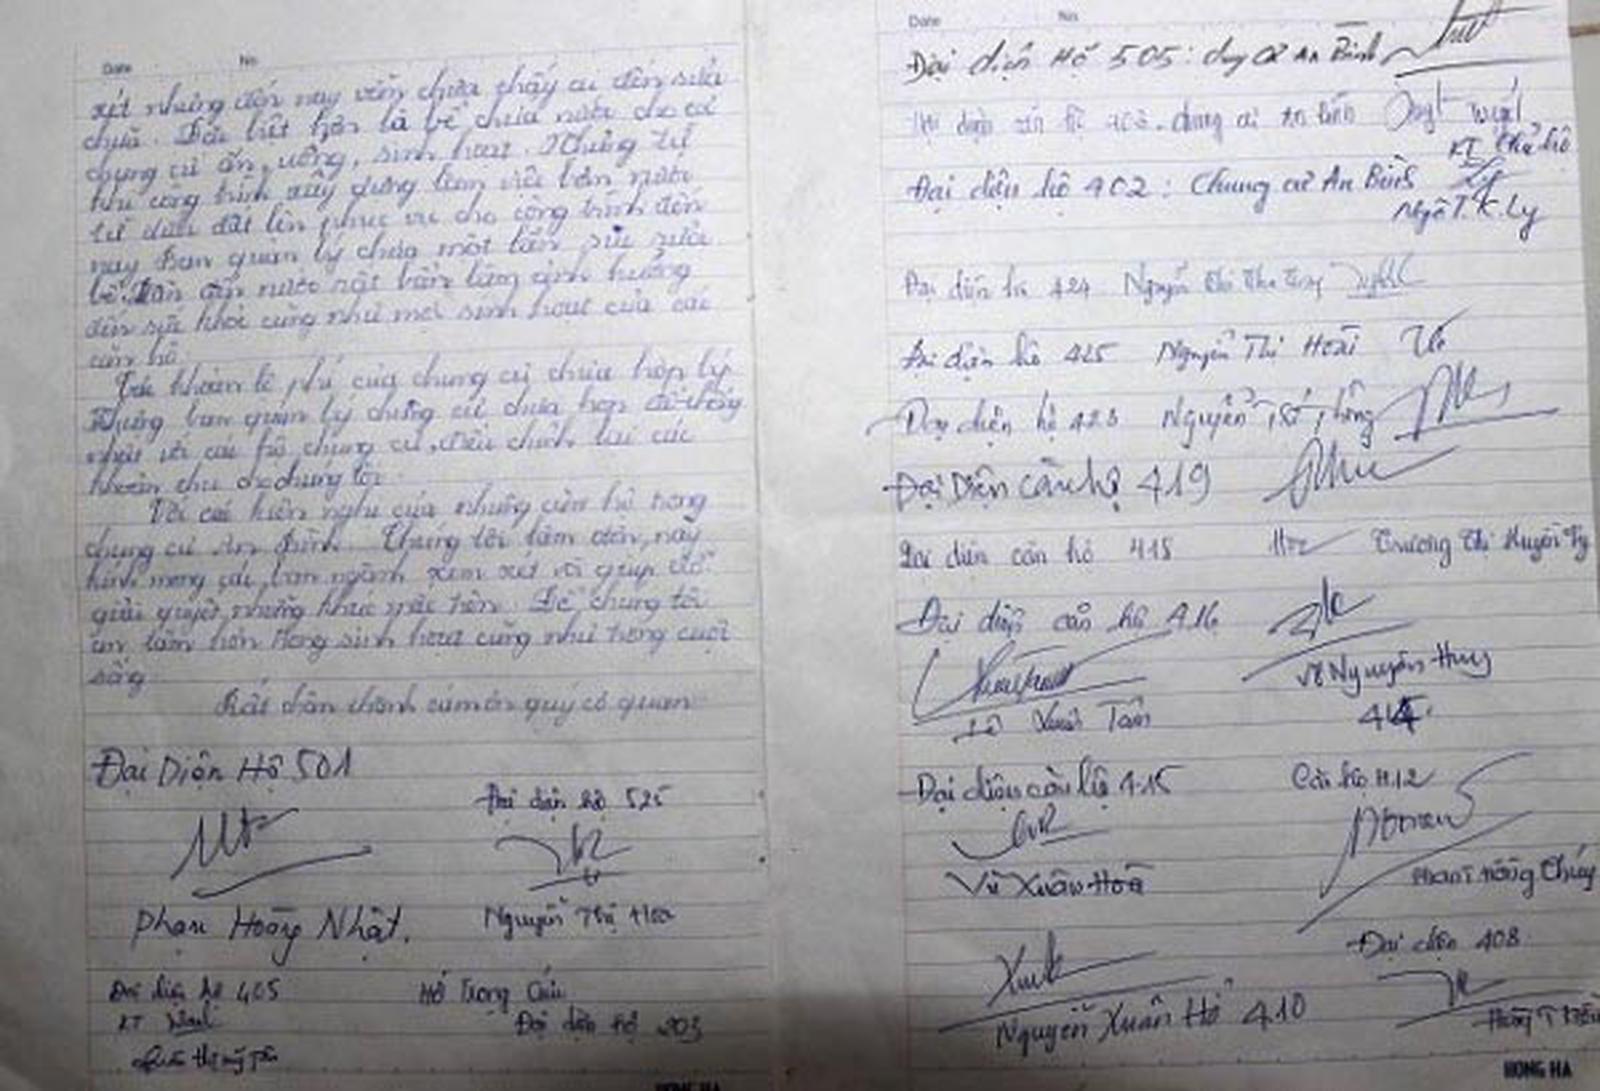 Date No.
xét nhưng đến nay vẫn chưa thấy cu đến sửa
chữa. Đặc biệt hơn là bể chứa nước cho cả
chung cư ăn, uống, sinh hoạt. Nhưng từ
khi công trình xây dựng làm việc bơm nước
từ dưới đất lên phục vụ cho công trình đến
nay Ban quản lý chưa một lần súc rửa
bể. Dẫn đến nước rất bẩn làm ảnh hưởng
đến sức khỏe cũng như mọi sinh hoạt của các
căn hộ.
Các khoản lệ phí của chung cư chưa hợp lý
Nhưng ban quản lý chung cư chưa họp để thống
nhất với các hộ chung cư, điều chỉnh lại các
khoản thu cho chúng tôi.
Với cái kiến nghị của những căn hộ trong
chung cư An Bình. Chúng tôi làm đơn này
kính mong các ban ngành xem xét và giúp đỡ
giải quyết những khúc mắc trên. Để chúng tôi
an tâm hơn trong sinh hoạt cũng như trong cuộc
sống
Rất chân thành cảm ơn quý cơ quan
Đại Diện Hộ 501
Đại diện hộ 525
Phan Hoàng Nhật.
Nguyễn Thị Hoa
Đại diện hộ 405
Hồ Trọng Cửu
KT
Đại diện hộ 203
HONG HA
Date No.
Đại diện Hộ 505: chung cư An Bình
chung cư An Bình
KT Chủ hộ
Đại diện hộ 402: Chung cư An Bình
Ngô T.K.Ly
Đại diện hộ 424 Nguyễn Thị
Đại diện hộ 425 Nguyễn Thị Hoài
Đại diện hộ 423 Nguyễn
Đại Diện căn hộ 419
Đại diện căn hộ 418 Trương Thị Huyền
Đại diện căn hộ 416
Võ Nguyên Huy
Lê Xuân Tấn
Đại diện căn hộ 415
Căn hộ 412
Vũ Xuân Hoà
Thúy
Đại diện 408
Nguyễn Xuân Hổ 410
HONG HA